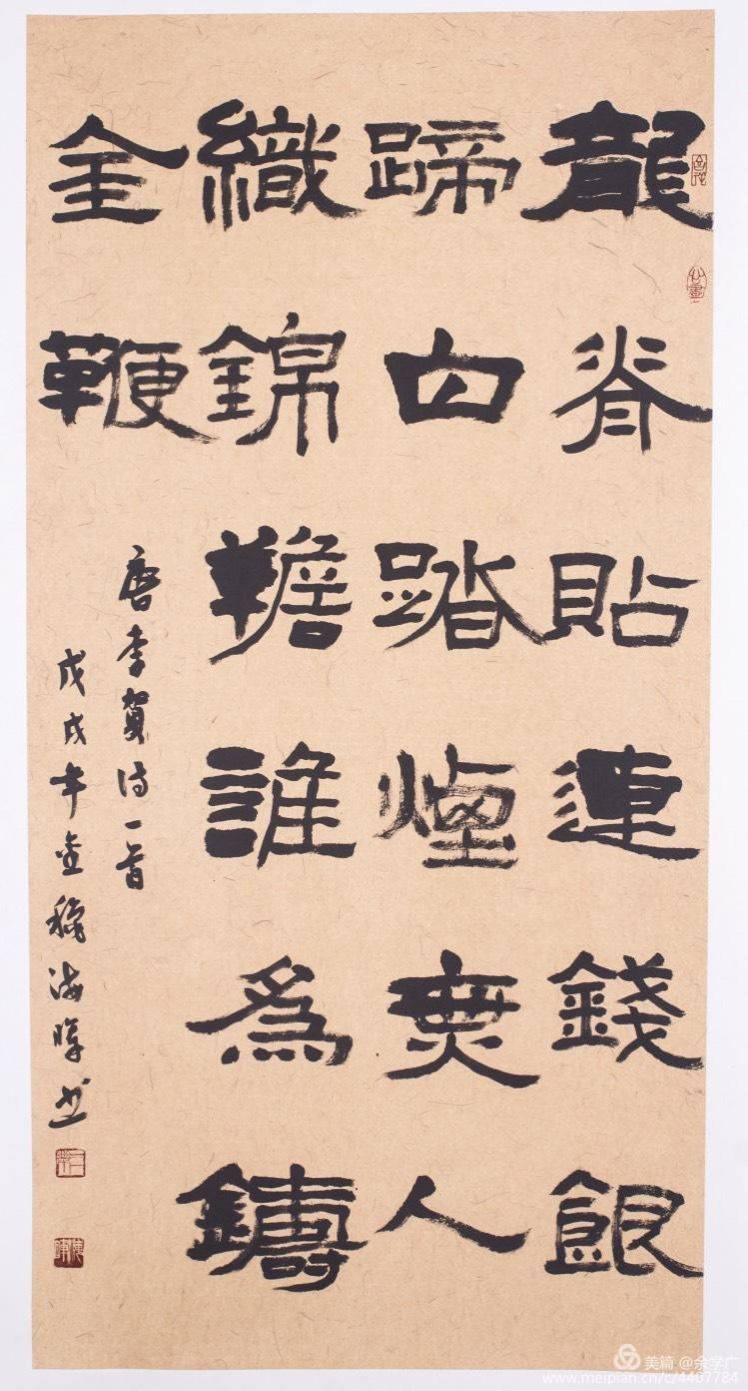 龍脊貼連錢銀
蹄白踏煙無人
織錦韂誰爲鑄
金鞭
唐李賀诗一首
戊戌年金秋海暉书
美篇 @余学广
www.meipian.cn/c/4407784